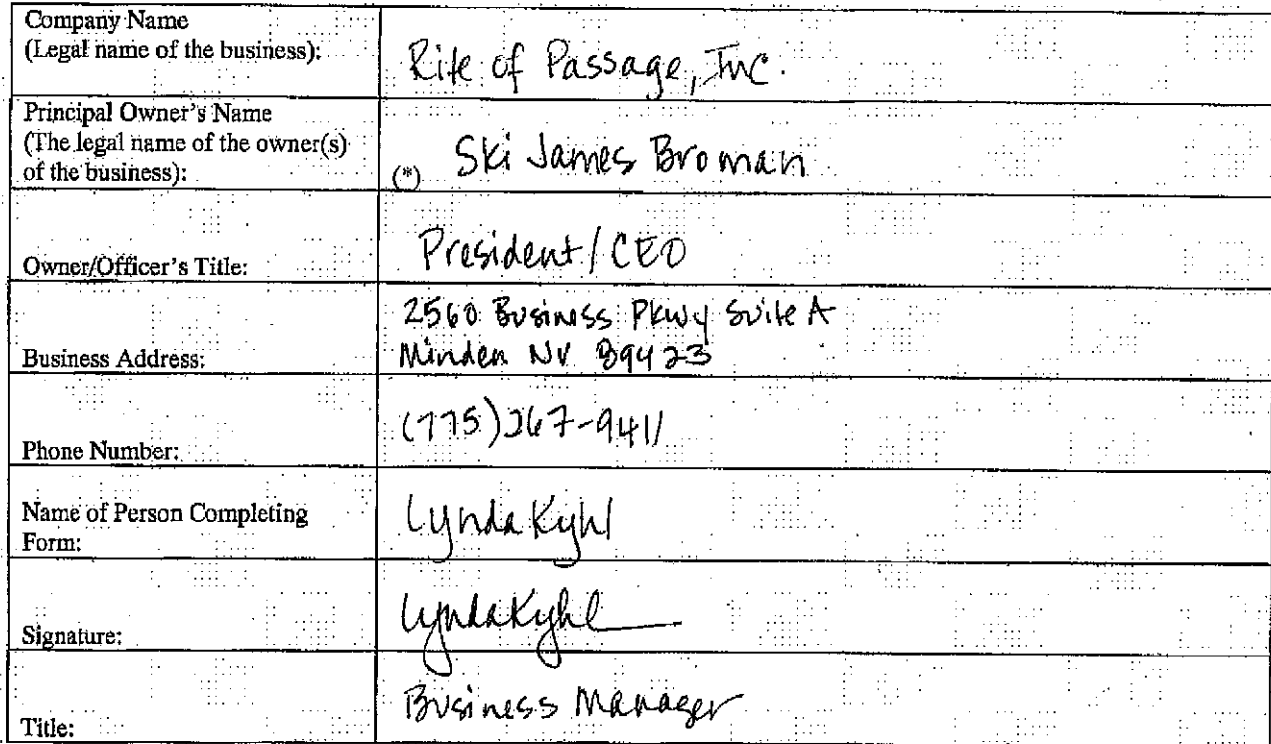 Company Name
(Legal name of the business):
Rite of Passage, Inc.
Principal Owner's Name
(The legal name of the owner(s)
of the business):
(*) Ski James Broman
Owner/Officer's Title:
President/CEO
Business Address:
2560 Business Pkwy Suite A
Minden NV 89423
Phone Number:
(775)267-9411
Name of Person Completing
Form:
Lynda Kyhl
Signature:
Lynda Kyhl
Title:
Business Manager